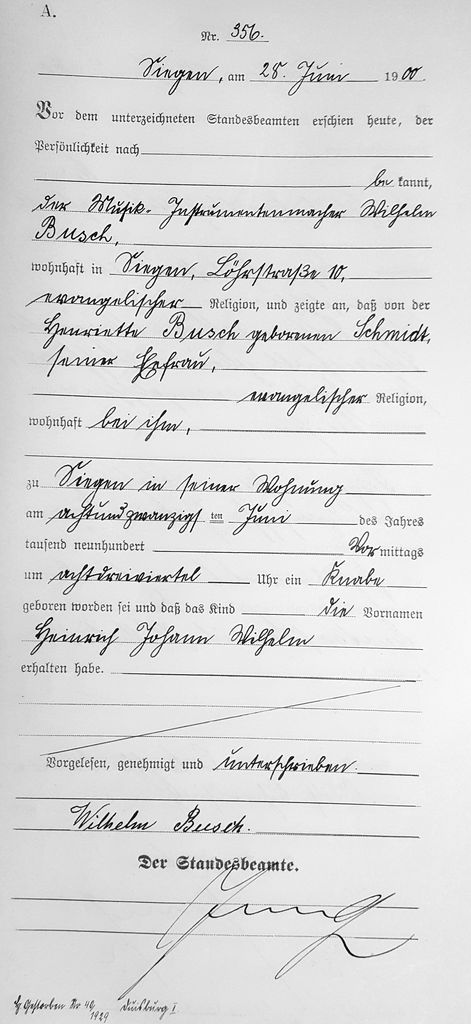 A.
Nr. 356.
Siegen, am 28. Juni 1900.
Vor dem unterzeichneten Standesbeamten erschien heute, der
Persönlichkeit nach
be kannt,
der Musik-Instrumentenmacher Wilhelm
Busch,
wohnhaft in Siegen, Löhrstraße 10,
evangelischer Religion, und zeigte an, daß von der
Henriette Busch geborenen Schmidt,
seiner Ehefrau,
evangelischer Religion,
wohnhaft bei ihm,
zu Siegen in seiner Wohnung
am achtundzwanzigs ten Juni des Jahres
tausend neunhundert Vor mittags
um achtdreiviertel Uhr ein Knabe
geboren worden sei und daß das Kind die Vornamen
Heinrich Johann Wilhelm
erhalten habe.
Vorgelesen, genehmigt und unterschrieben.
Wilhelm Busch.
Der Standesbeamte.
Gestorben Nr 49/1929 Duisburg I